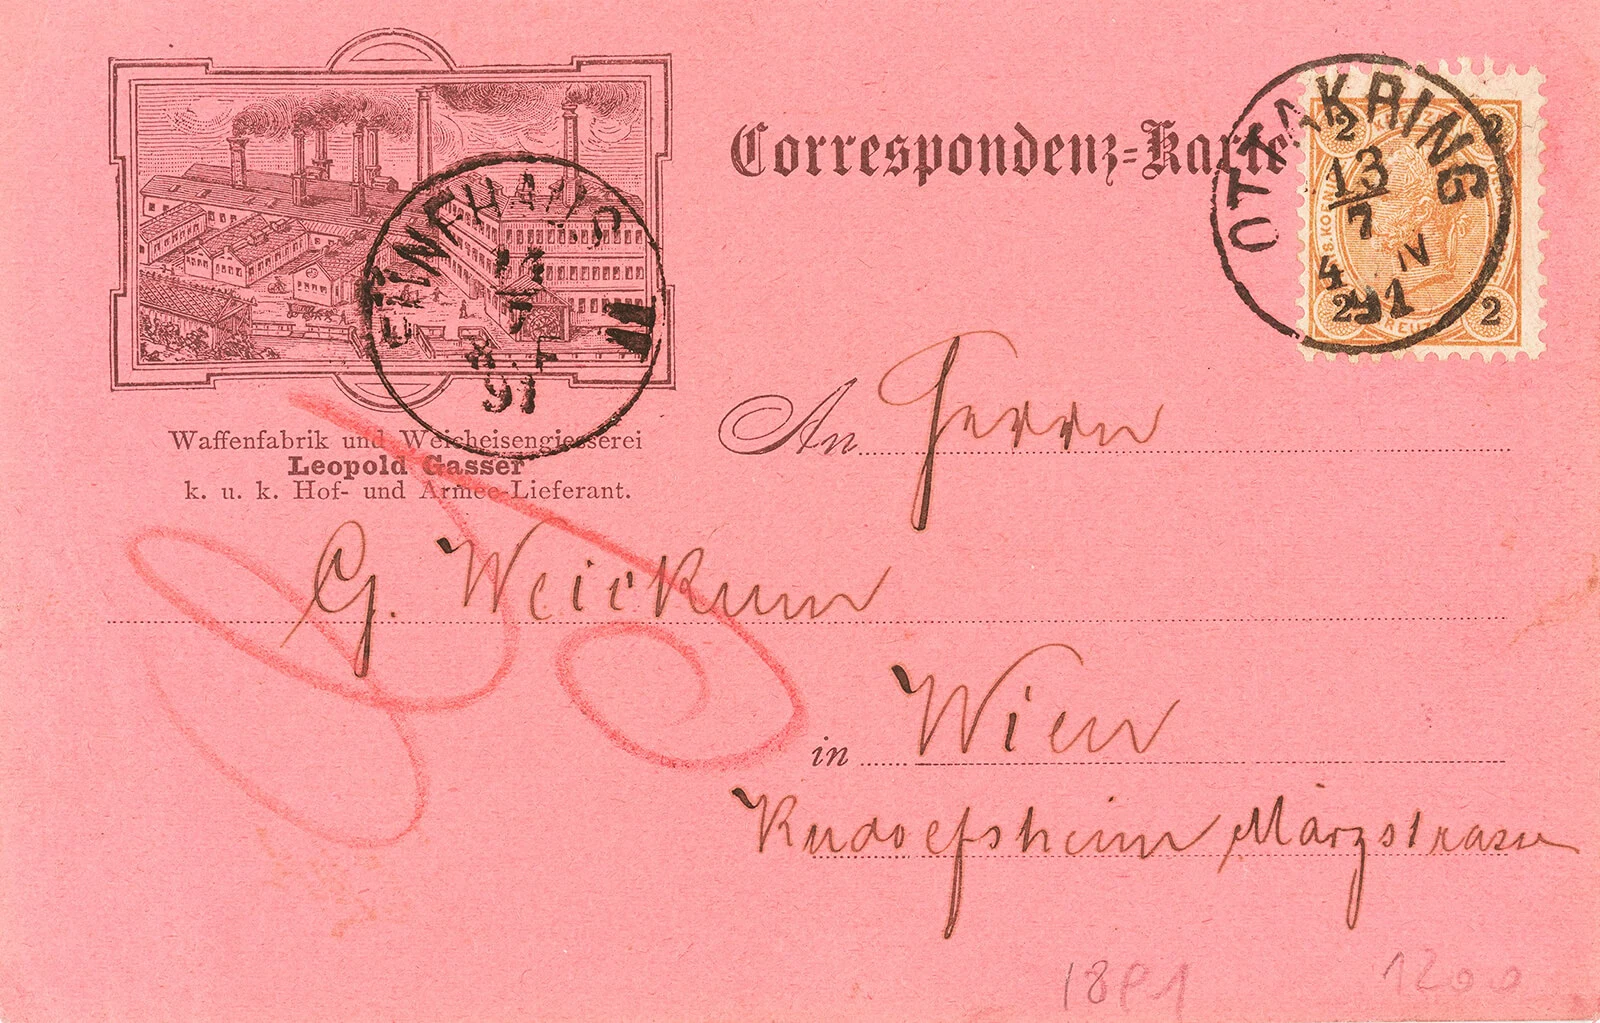 Correspondenz-Karte
OTTAKRING
13
7
4 IV
91
2 2
2 2
KREUZ
FÜNFHAUS
91
Waffenfabrik und Weicheisengiesserei
Leopold Gasser
k. u. k. Hof- und Armee-Lieferant.
An Herrn
G. Weickum
in Wien
Rudolfsheim Märzstrasse
1891 1200